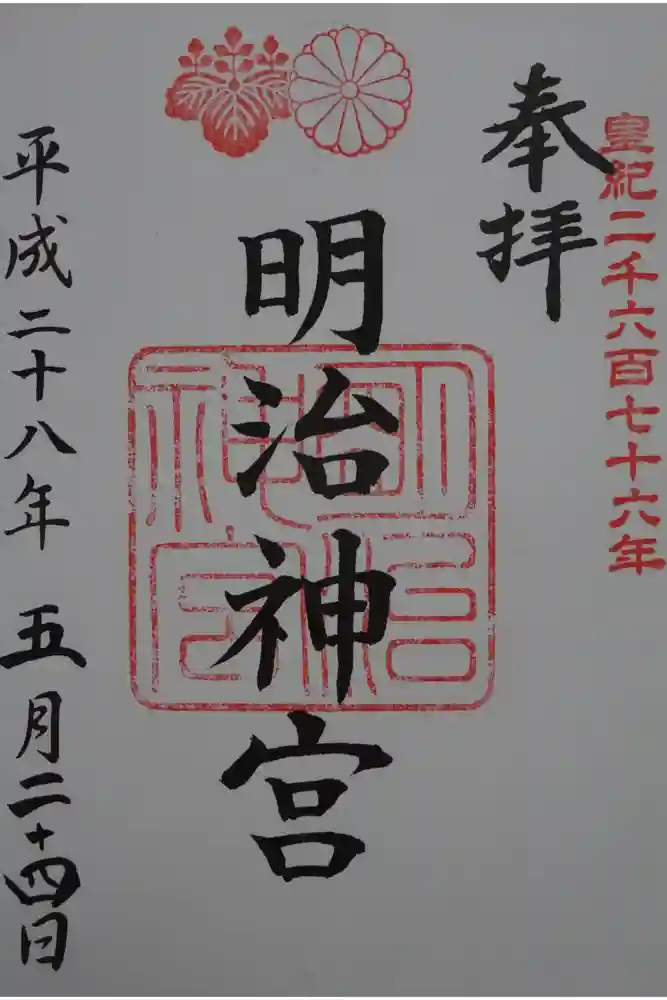 皇紀二千六百七十六年
奉拝
明治神宮
明治神宮
平成二十八年 五月二十四日